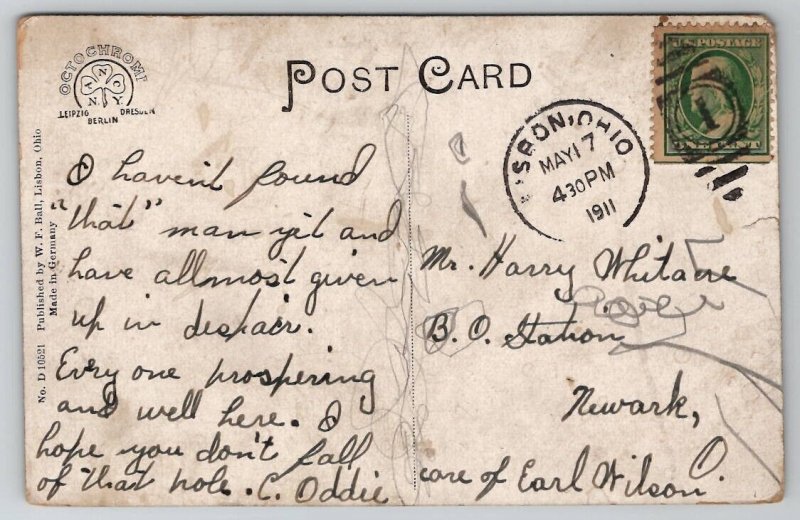 OCTOCHROME
T A N N O Y
LEIPZIG DRESDEN
BERLIN
POST CARD
U.S. POSTAGE
1
LISBON, OHIO
MAY 17
430 PM
1911
No. D 10521 Published by W. F. Ball, Lisbon, Ohio
Made in Germany
I haven't found
"that" man yet and
have allmost given
up in despair.
Evry one prospering
and well here. I
hope you don't fall
of that pole. C. Oddie
Mr. Harry Whitacre
B. O. Station
Newark,
O.
care of Earl Wilson